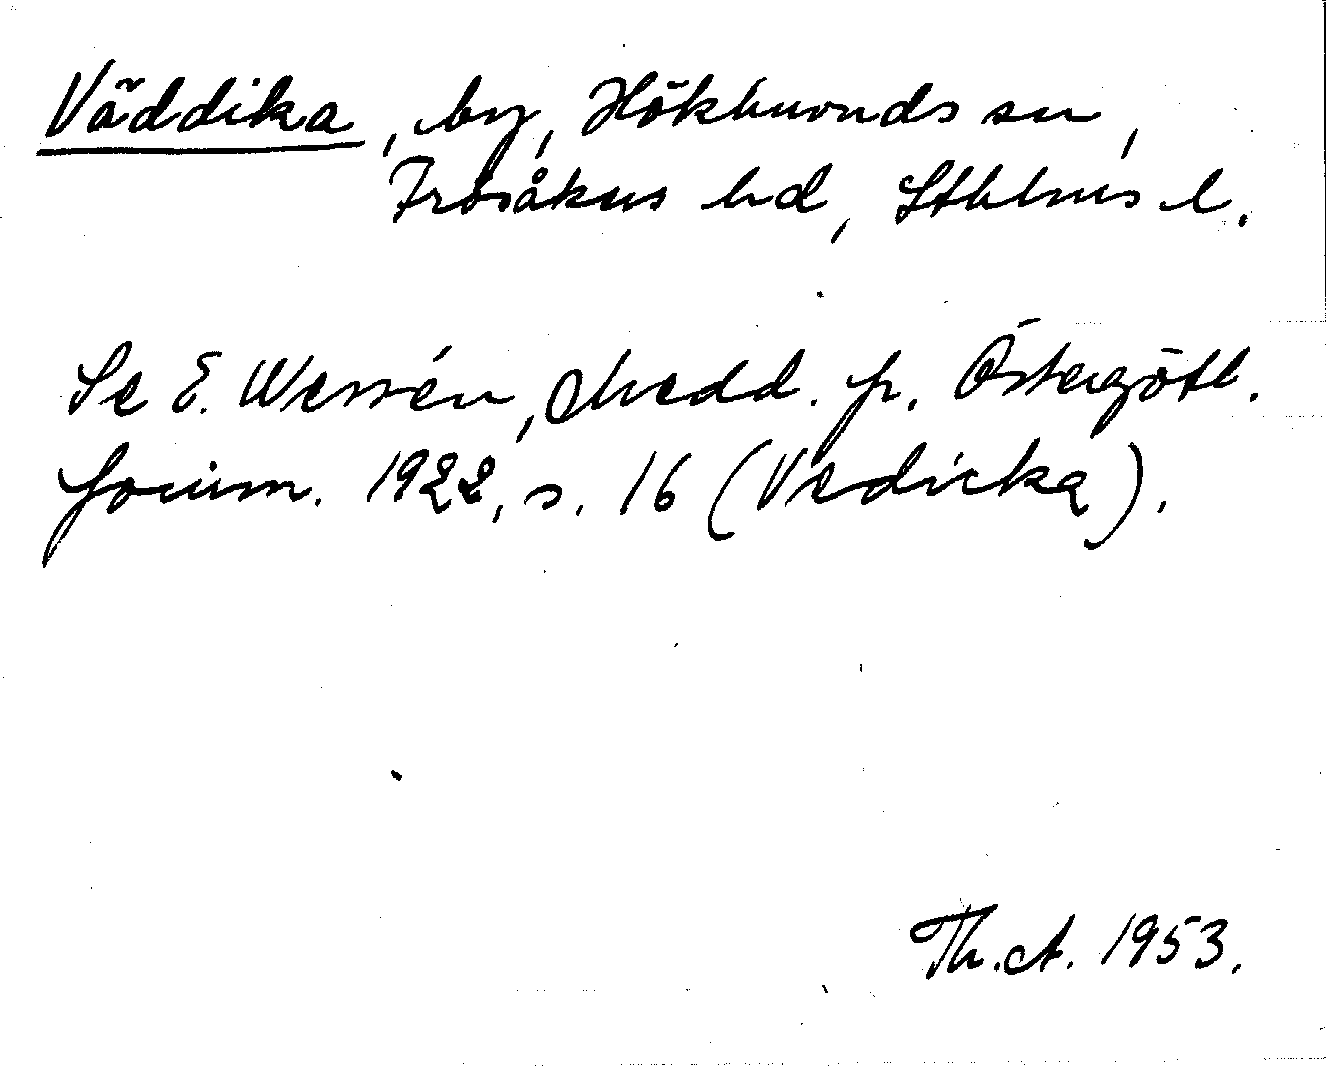 Väddika, by, Hökhuvuds sn,
Frösåkers hd, Sthlms l.
Se E. Wessén, Medd. fr. Östergötl.
fornm. 1922, s. 16 (Vedicka).
Th. A. 1953.